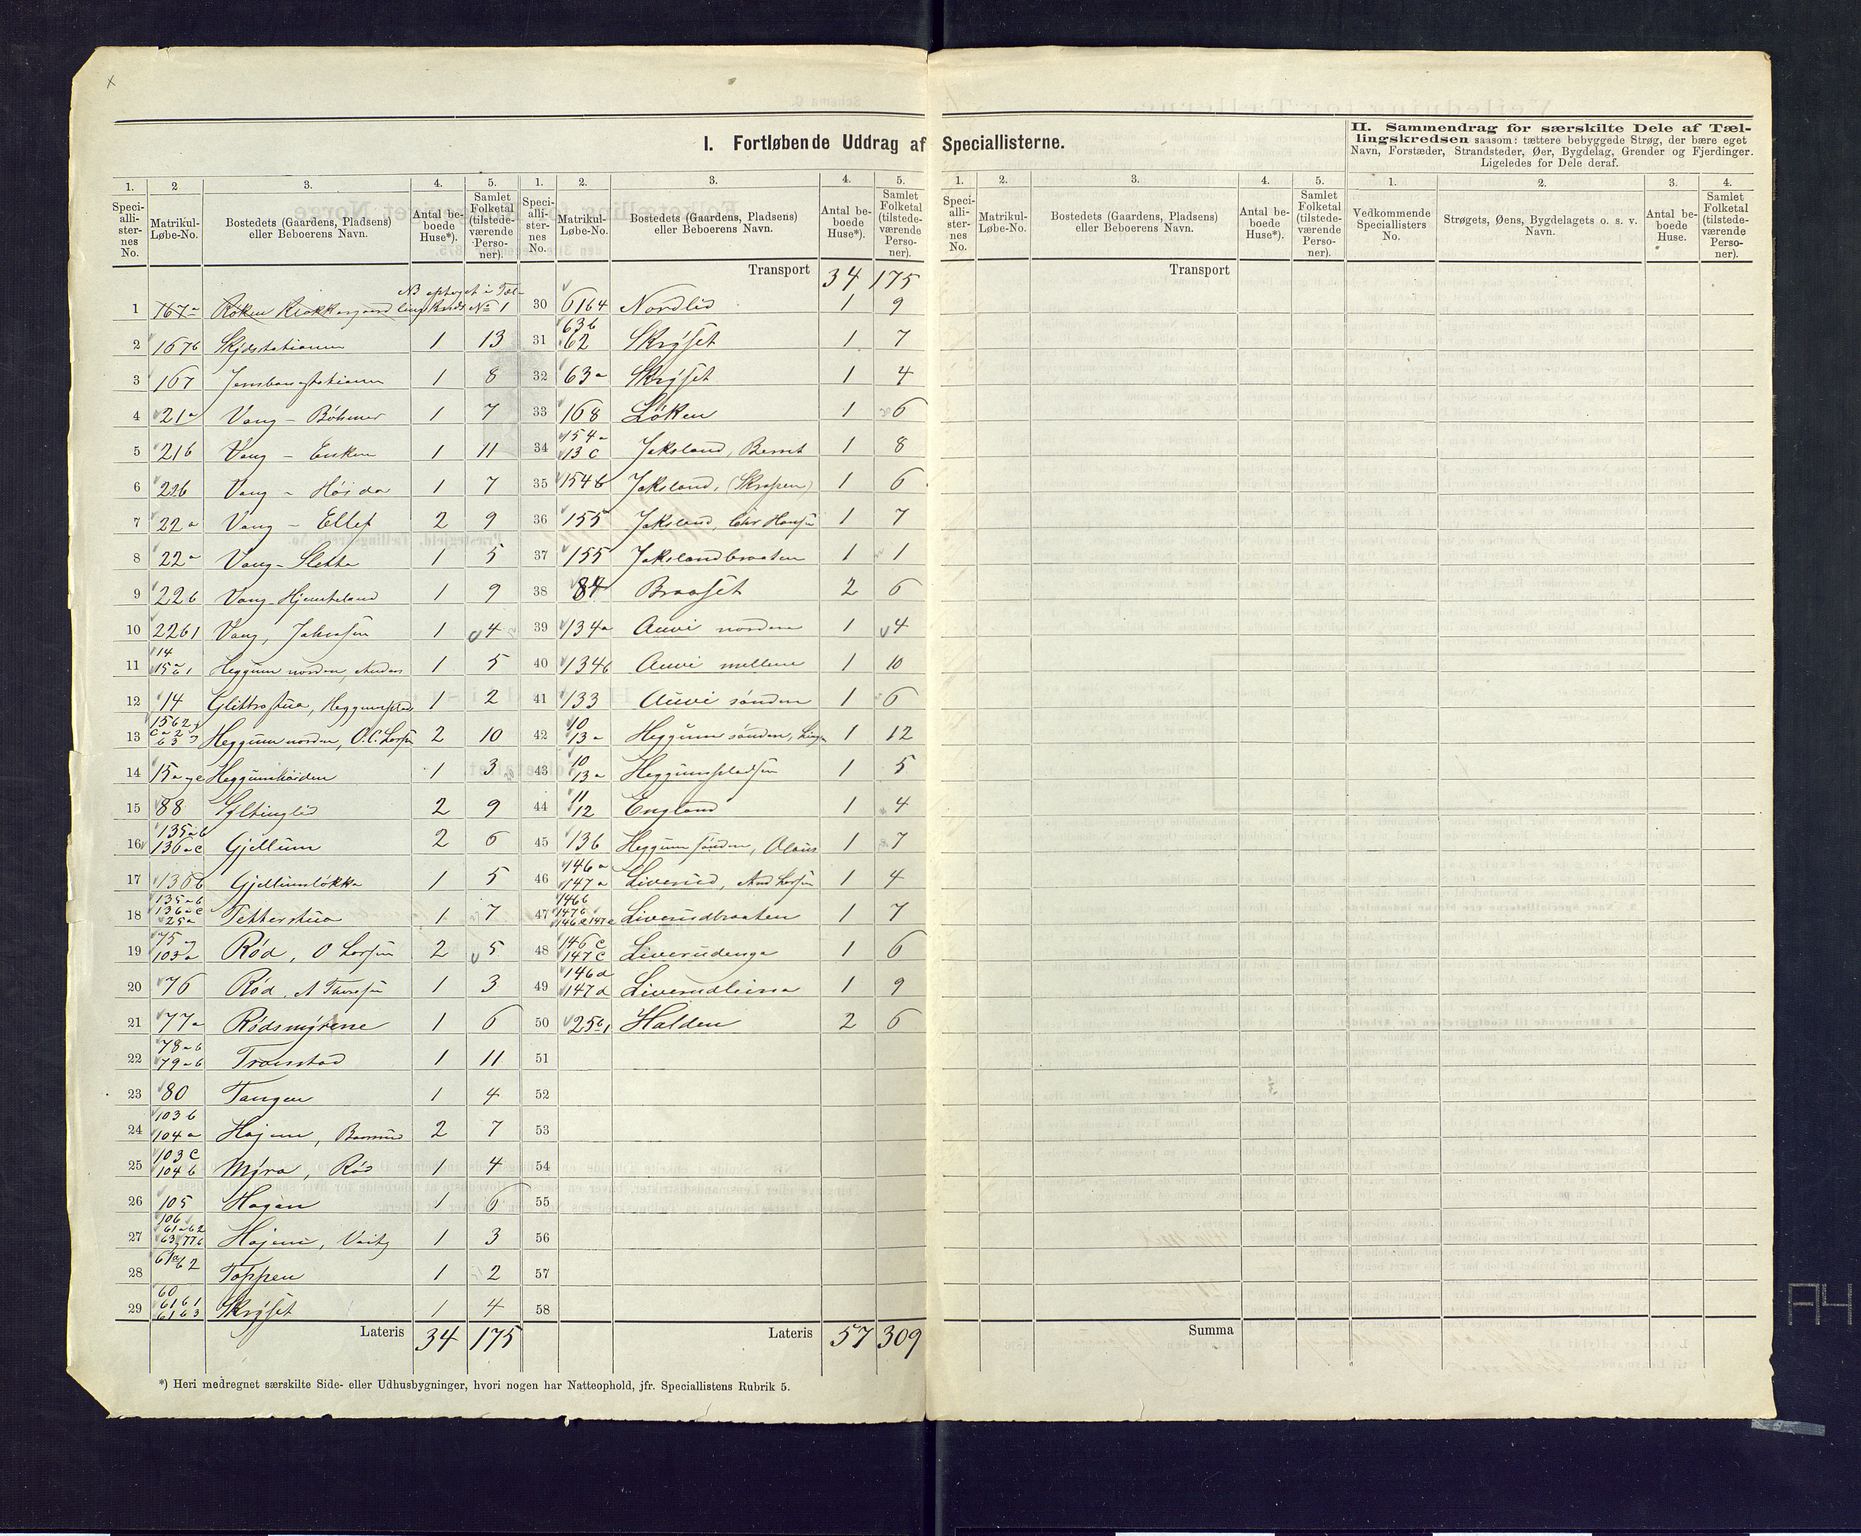 I. Fortløbende Uddrag af Speciallisterne.
II. Sammendrag for særskilte Dele af Tæl-
lingskredsen saasom: tættere bebyggede Strøg, der bære eget
Navn, Forstæder, Strandsteder, Øer, Bygdelag, Grender og Fjerdinger.
Ligeledes for Dele deraf.
1. 2 3. 4. 5. 1. 2. 3. 4. 5. 1. 2. 3. 4. 5. 1. 2. 3. 4.
Speciallisternes No. Matrikul-Løbe-No. Bostedets (Gaardens, Pladsens) eller Beboerens Navn. Antal beboede Huse*). Samlet Folketal (tilstedeværende Personer).
Speciallisternes No. Matrikul-Løbe-No. Bostedets (Gaardens, Pladsens) eller Beboerens Navn. Antal beboede Huse*). Samlet Folketal (tilstedeværende Personer).
Speciallisternes No. Matrikul-Løbe-No. Bostedets (Gaardens, Pladsens) eller Beboerens Navn. Antal beboede Huse*). Samlet Folketal (tilstedeværende Personer).
Vedkommende Speciallisters No. Strøgets, Øens, Bygdelagets o. s. v. Navn. Antal beboede Huse. Samlet Folketal (tilstedeværende Personer).
NB optaget i Tæl-
1 167a Røken Klokkergaard lingskreds No 1
2 167b Skjdsstationen 1 13
3 167 Jernbanestationen 1 8
4 21a Vang - Böhmer 1 7
5 21b Vang - 1 11
6 22b Vang - Høida 1 7
7 22a Vang - Ellef 2 9
8 22a Vang - Sletta 1 5
9 22b Vang - Hjemteland 1 9
10 22b1 Vang, Johnsen 1 4
11 14 15a b1 Heggum norden, Anders 1 5
12 14 Glitrastua, Heggumsplads 1 2
13 Heggum norden, O.C. Larsen 2 10
14 Heggumhøiden 1 3
15 88 Gyltinglid 2 9
16 135ab 136ac Gjellum 2 6
17 136b Gjellumsløkka 1 5
18 135ab 136ac 25a Tetterstua 1 7
19 75a 103a Rød, O Larsen 2 5
20 76 Rød, A Thoresen 1 3
21 77a Rødsmyrene 1 6
22 78ab 79ab Tronstad 1 11
23 80 Tangen 1 4
24 103b 104a Hajem, 2 7
25 103c 104b Myra, Rød 1 4
26 105 Hagan 1 6
27 106 61ab2 63 77b Hajem, 1 3
28 Toppen 1 2
29 60 61b1 61b3 Skryset 1 4
Lateris 34 175
Transport 34 175
30 6164 Nordlid 1 9
31 63b 62 Skryset 1 7
32 63a Skryset 1 4
33 168 Løken 1 6
34 154a 13c Jaksland, Bernt 1 8
35 154b Jaksland, (Skrapen) 1 6
36 155 Jaksland, Chr Hansen 1 7
37 155 Jakslandbraaten 1 1
38 84 Braaset 2 6
39 134a Auvi norden 1 4
40 134b Auvi mellem 1 10
41 133 Auvi sønden 1 6
42 10 13a Heggum sønden, 1 12
43 10 13a Heggumspladsen 1 5
44 11 12 England 1 4
45 13b Heggum sønden, Olaus 1 7
46 146a 147a Liverud, And Larsen 1 4
47 146b 147b Liverudbraaten 1 7
48 146c 147c Liverudenga 1 6
49 146d 147d Liverudleina 1 9
50 25b1 Halden 2 6
51
52
53
54
55
56
57
58
Lateris 57 309
Transport
Summa
*) Heri medregnet særskilte Side- eller Udhusbygninger, hvori nogen har Natteophold, jfr. Speciallistens Rubrik 5.
A4